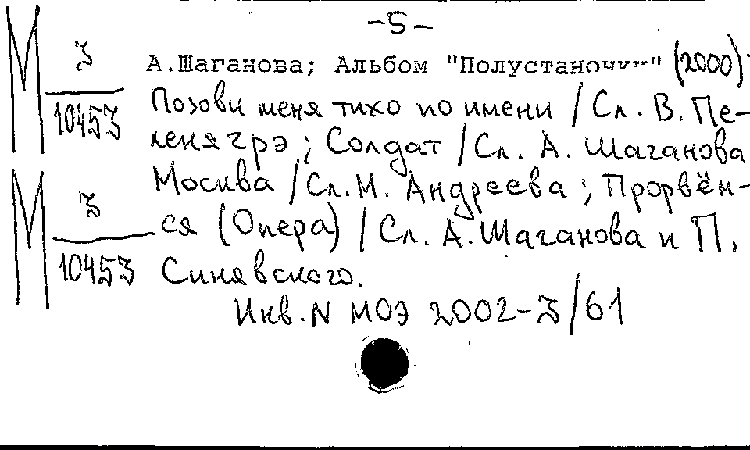 -5-
М З
10453
А.Шаганова; Альбом "Полустаночки" (2000)
Позови меня тихо по имени / Сл. В. Пе-
леня грэ; Солдат / Сл. А. Шаганова
Москва / Сл. М. Андреева; Прорвём-
ся (Опера) / Сл. А. Шаганова и П.
Синявского.
М З
10453
Инв. N МОЭ 2002-З/61